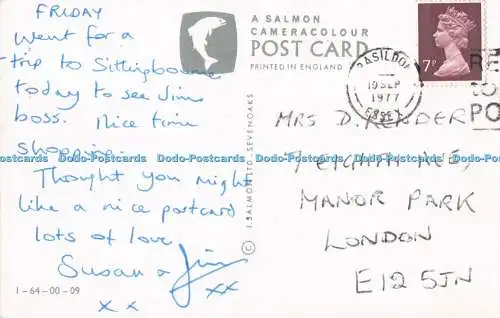 FRIDAY
Went for a
trip to Sittingbourne
today to see Jims
boss. Nice time
shopping.
Thought you might
like a nice postcard
lots of love
Susan & Jim
x x xx
1-64-00-09
A SALMON
CAMERACOLOUR
POST CARD
PRINTED IN ENGLAND
© J. SALMON LTD., SEVENOAKS
7P
BASILDON
19 SEP
1977
ESSEX
RE
TO
PO
MRS D. RENDER
AVE,
MANOR PARK
LONDON
E12 5JN
Dodo-Postcards Dodo-Postcards Dodo-Postcards Dodo-Postcards Dodo-Postcards Dodo-Postcards